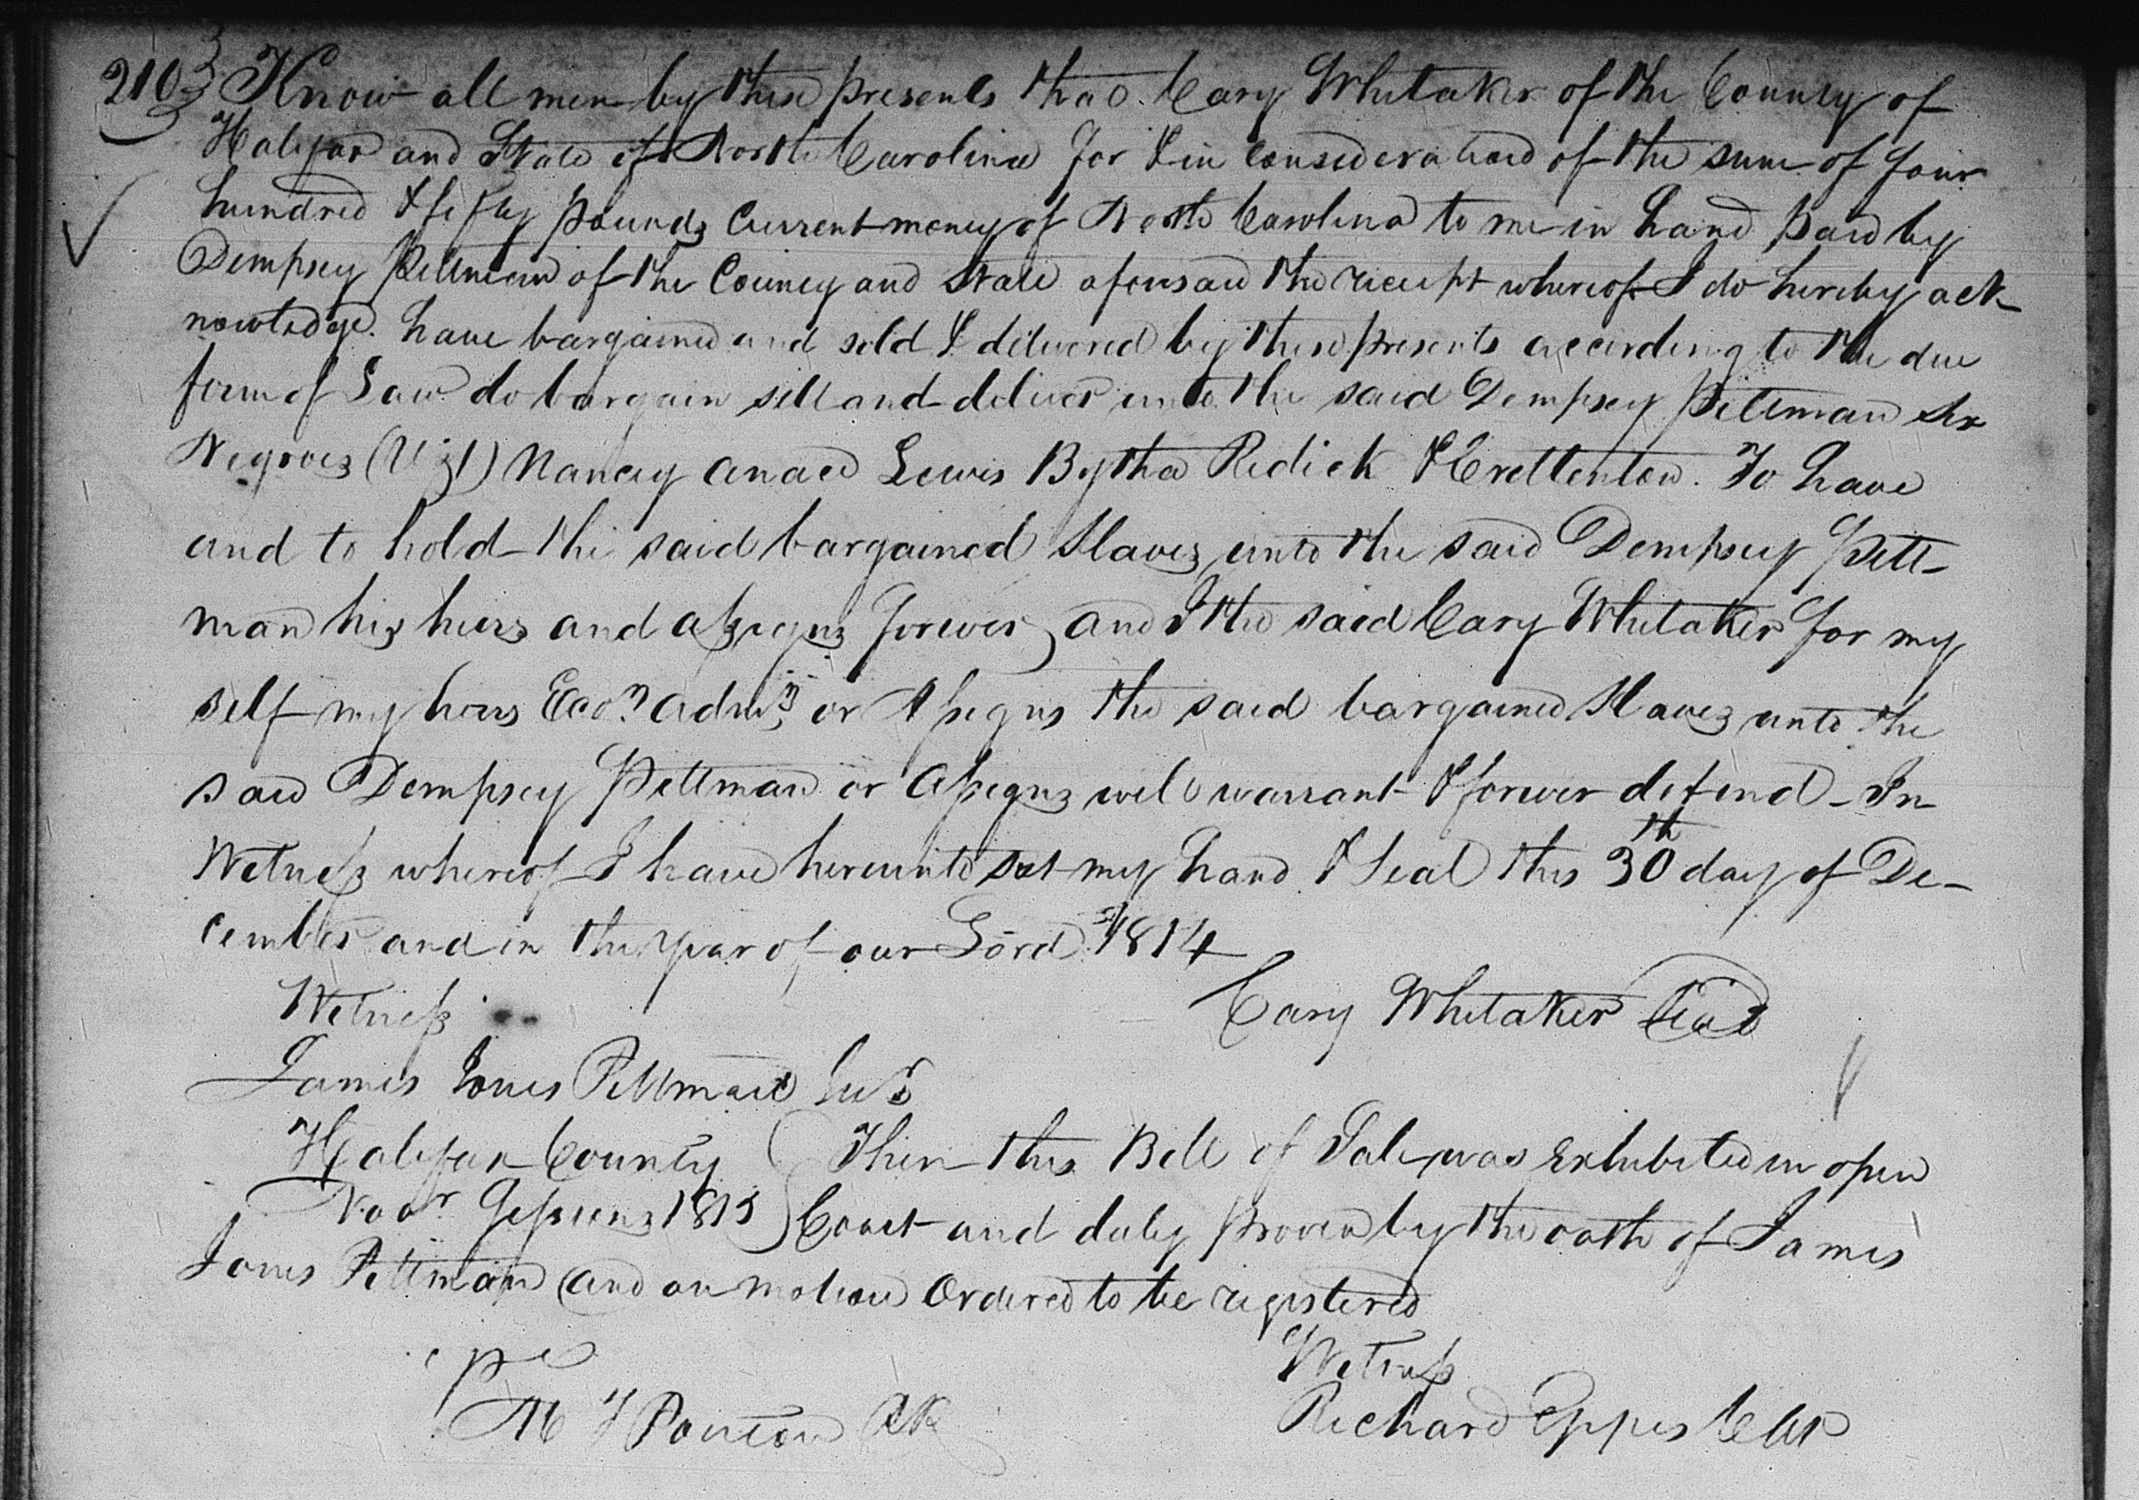 210 Know all men by these presents that Cary Whitaker of the County of
Halifax and State of North Carolina for & in consideration of the sum of four
hundred & fifty pounds Current money of North Carolina to me in hand paid by
Dempsey Pittman of the County and State aforesaid the receipt whereof I do hereby ack-
nowledge. have bargained and sold & delivered by these presents according to the due
form of Law do bargain sell and deliver unto the said Dempsey Pittman Six
Negroes (Vizt) Nancy Lewis Bytha Redick & Crettenton. To have
and to hold the said bargained Slaves unto the said Dempsey Pitt-
man his heirs and assigns forever, and I the said Cary Whitaker for my
self my heirs Admrs or Assigns the said bargained Slaves unto the
said Dempsey Pittman or assigns will warrant & forever defend - In
Witness whereof I have hereunto set my hand & Seal this 30th day of De-
cember and in the year of our Lord 1814
Witness
Cary Whitaker Seal
James Jones Pittman
Halifax County } Then this Bill of Sale was exhibited in open
1815 } Court and duly proven by the oath of James
Jones Pittman and on motion Ordered to be registered
Witness
Richard Eppes Clk